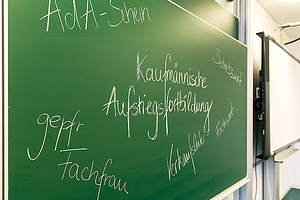 AdA-Schein
Betriebswirt
Kaufmännische
Aufstiegsfortbildung
gepfr
Fachwirt
Verkaufsleiter
Fachfrau